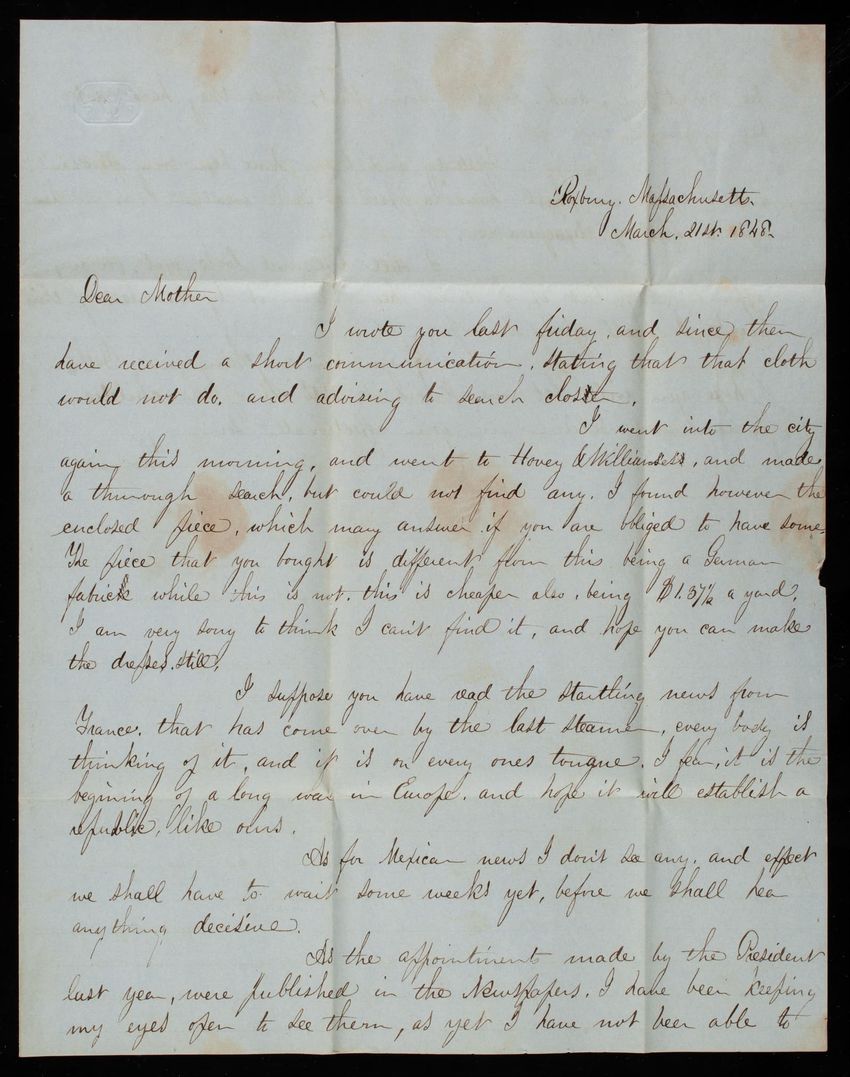 Roxbury. Massachusetts.
March. 21st. 1848.
Dear Mother
I wrote you last friday, and since then
have received a short communication, stating that that cloth
would not do. and advising to search closer.
I went into the city
again this morning, and went to Hovey & Williams's, and made
a thorough search, but could not find any. I found however the
enclosed piece, which may answer if you are obliged to have some.
The piece that you bought is different from this being a German
fabrick while this is not. this is cheaper also, being $1.37½ a yard.
I am very sorry to think I can't find it, and hope you can make
the dresses still.
I suppose you have read the startling news from
France, that has come over by the last steamer, every body is
thinking of it, and it is on every ones tongue. I fear, it is the
begining of a long war in Europe. and hope it will establish a
republic, like ours.
As for Mexican news I don't see any. and expect
we shall have to wait some weeks yet, before we shall hea
anything decisive.
As the appointments made by the President
last year, were published in the Newspapers. I have been keeping
my eyes open to see them, as yet I have not been able to